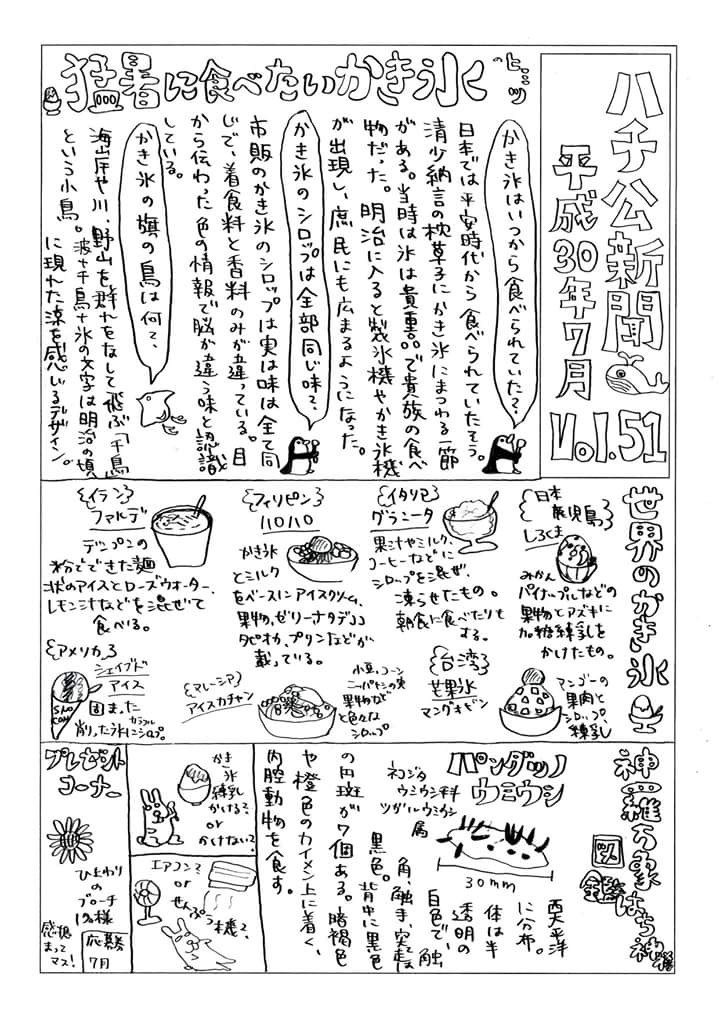 ハチ公新聞
平成30年7月
Vol.51
猛暑に食べたいかき氷のヒミツ
かき氷はいつから食べられていた?
日本では平安時代から食べられていたそう。
清少納言の枕草子にかき氷にまつわる一節
がある。当時は氷は貴重品で貴族の食べ
物だった。明治に入ると製氷機やかき氷機
が出現し、庶民にも広まるようになった。
かき氷のシロップは全部同じ味?
市販のかき氷のシロップは実は味は全て同
じで、着食料と香料のみが違っている。目
から伝わった色の情報で脳が違う味と認識
している。
かき氷の旗の鳥は何?
海岸や川、野山を群れをなして飛ぶ「千鳥」
という小鳥。波や千鳥+氷の文字は明治の頃
に現れた涼を感じるデザイン。
世界のかき氷
日本
鹿児島
しろくま
みかん
パイナップルなどの
果物とアズキに
加糖練乳を
かけたもの。
イタリア
グラニータ
果汁やミルク、
コーヒーなどに
シロップを混ぜ、
凍らせたもの。
朝食に食べたりも
する。
フィリピン
ハロハロ
かき氷
とミルク
をベースにアイスクリーム、
果物、ゼリーナタデココ
タピオカ、プリンなどが
載っている。
イラン
ファルデ
デンプンの
粉でできた麺
状のアイスとローズウォーター、
レモン汁などを混ぜて
食べる。
台湾
芒果氷
マンゴオピン
マンゴーの
果肉と
シロップ、
練乳
マレーシア
アイスカチャン
小豆、コーン
ニッパヤシの実
果物など
と色々な
シロップ
アメリカ
シェイブド
アイス
SNO
CONE
固まった
削った氷にカラフルシロップ。
神羅万象はち神様
図鑑
パンダツノ
ウミウシ
ネコジタ
ウミウシ科
ツガルウミウシ
属
30mm
西太平洋
に分布。
体は半
透明の
白色で、触
角、触手、突起
黒色。背中に黒色
の円斑が7個ある。暗褐色
や橙色のカイメン上に着く、
内腔動物を食す。
かき
氷
練乳
かける?
or
かけない?
エアコン?
or
せんぷう機?
プレゼント
コーナー
ひまわり
の
ブローチ
1名様
応募
7月
感想
まって
マス!